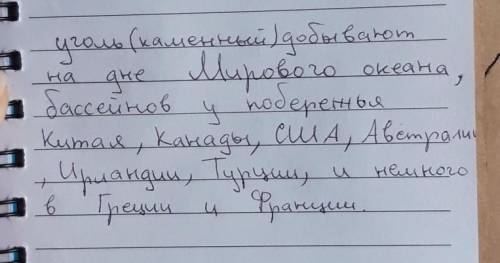 уголь(каменный)добывают
на дне Мирового океана,
бассейнов у побережья
Китая, Канады, США, Австралии
, Ирландии, Турции, и немного
в Греции и Франции.